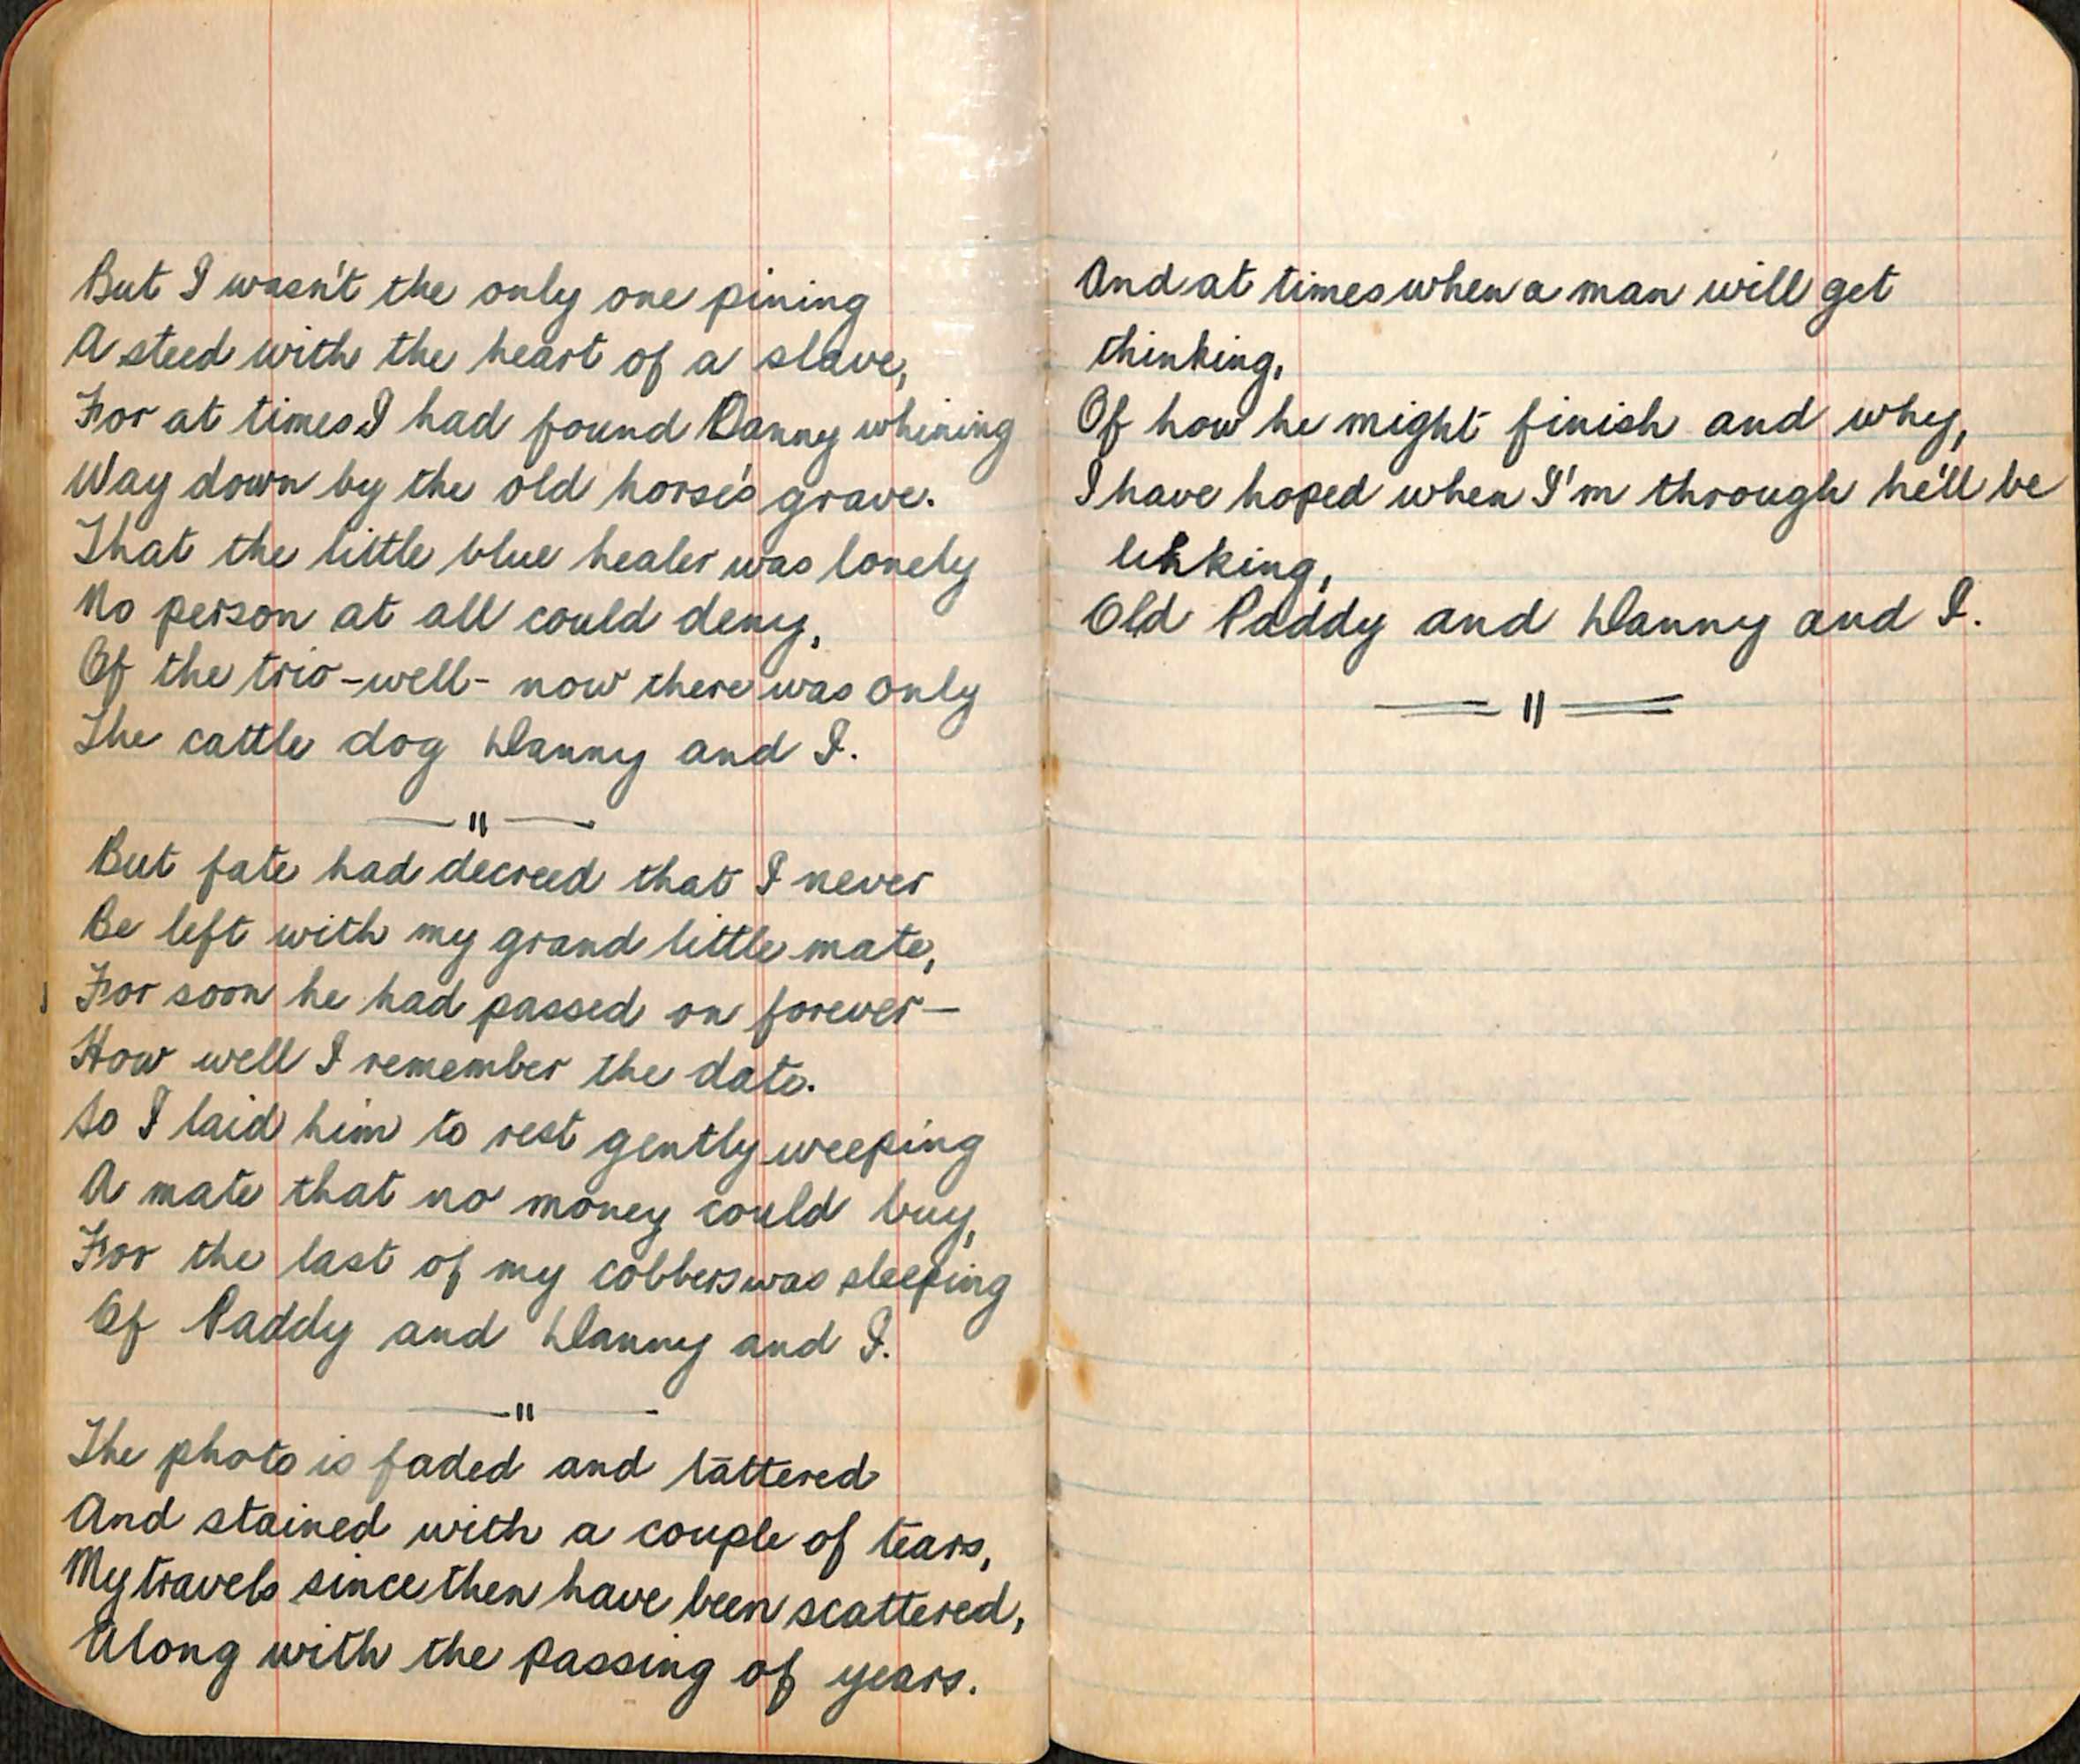 But I wasn't the only one pining
A steed with the heart of a slave,
For at times I had found Danny whining
Way down by the old horse's grave.
That the little blue healer was lonely
No person at all could deny,
Of the trio - well - now there was only
The cattle dog Danny and I.
— " —
But fate had decreed that I never
Be left with my grand little mate,
For soon he had passed on forever —
How well I remember the date.
So I laid him to rest gently weeping
A mate that no money could buy,
For the last of my cobbers was sleeping
Of Paddy and Danny and I.
— " —
The photo is faded and tattered
And stained with a couple of tears,
My travels since then have been scattered,
Along with the passing of years.
And at times when a man will get
thinking,
Of how he might finish and why,
I have hoped when I'm through he'll be
linking,
Old Paddy and Danny and I.
== " ==